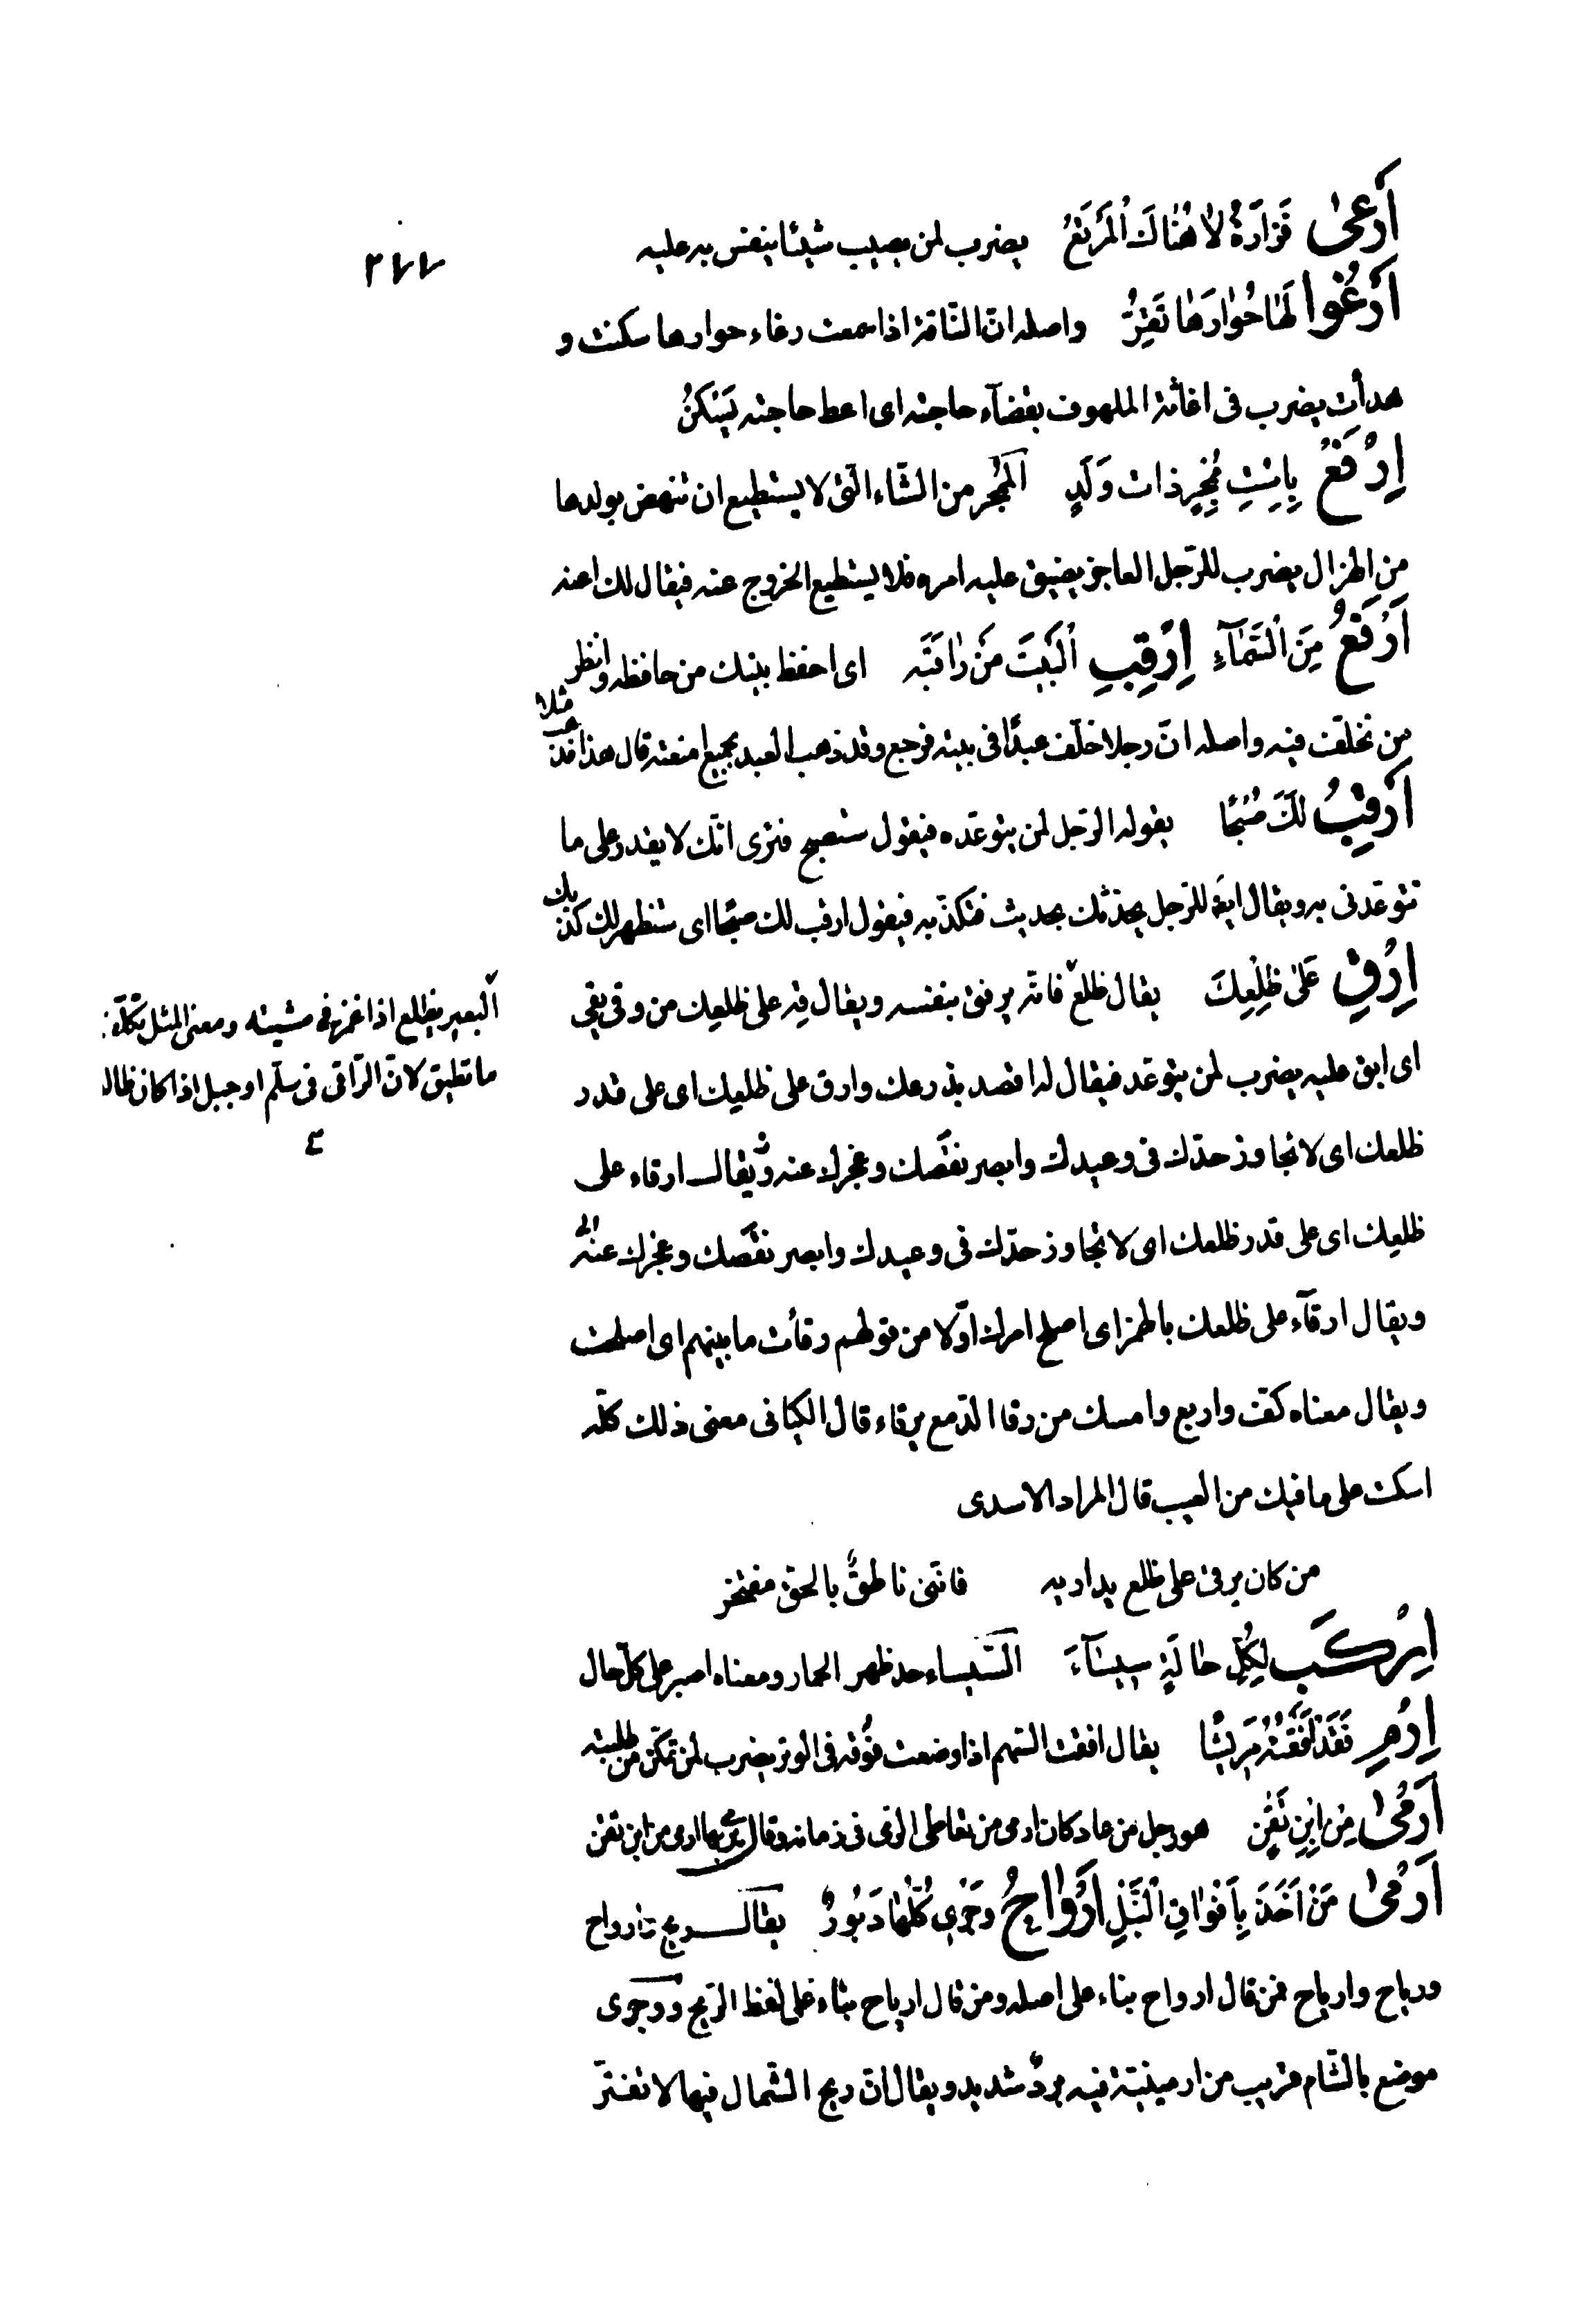 ٢٧٧
أَرْعَىٰ فَزَارَةُ لَا هَنَاكَ الْمَرْتَعُ يضرب لمن يصيب شيئا ينفس به عليه
أَرْغُوا لَهَا حُوَارَهَا تَقِرُّ واصله انّ النّاقة اذا سمعت رغاء حوارها سكنت و
هدأت يضرب فى اغاثة الملهوف بقضآء حاجته اى اعط حاجته يَسْكنُ
اِرْفَعْ بِاسْتِ مُجْخِرٍ ذات وَلَدٍ المُجْخر من الشّاء الّتى لا يستطيع ان تنهض بولدها
من الهزال يضرب للرّجل العاجز يضيق عليه امره فلا يستطيع الخروج عنه فيقال لك اعنه
أَرْفَعُ مِنَ السَّمَآءِ اِرْقِبِ الْبَيْتَ مَنْ رٰاقبَه اى احفظ بيتك من حافظه وانظر
من تخلّف فيه واصله انّ رجلا خلّف عبدًا فى بيته فرجع وقد ذهب العبد بجميع امتعته قال هذا فذهب مثلا
أَرْقُبُ لَكَ صُبْحًا يقوله الرّجل لمن يتوعّده فيقول ستصبح فترى انّك لا يقدر على ما
تتوعّدنى به ويقال ايضا للرّجل يحدّثك بحديث فتكذّبه فيقول ارقب لك صبحًا اى ستظهر لك كذبك
اِرْقِ عَلىٰ ظَلْعِكَ يقال ظلع فانّه يرفق بنفسه ويقال قِه على ظلعك من وقى يقى
اى ابق عليه يضرب لمن يتوعّد فيقال له اقصد بذرعك وارق على ظلعك اى على قدر
ظلعك اى لا تجاوز حدّك فى وعيدك وابصر نقصك وعجزك عنه ويقال ارقاء على
ظلعك اى على قدر ظلعك اى لا تجاوز حدّك فى وعيدك وابصر نقصك وعجزك عنه الى
ويقال ارقآء على ظلعك بالهمز اى اصلح امرك اوّلا من قولهم رقأت ما بينهم اى اصلحت
ويقال معناه كفّ واربع وامسك من رقا الدّمع يرقاء قال الكسائى معنى ذلك كلّه
اسكت على ما فيك من العيب قال المرار الاسدى
من كان يرقى على ظلع يداريه فانّنى ناطقٌ بالحق مفتخر
اِرْكَبْ لِكُلِّ حٰالَةٍ سِيسَآءَ السّيساء حد ظهر الحمار ومعناه اصبر على كلّ حال
اِرْمِ فَقَدْ أَفَقْتَهُ مَرِيشًا يقال افقت السّهم اذا وضعت فُوقه فى الوتر يضرب لمن تمكّن من طلبته
أَرْمىٰ مِنْ ابْنِ تَقْنٍ هو رجل من عاد كان ارمى من تعاطى الرّمى فى زمانه وقال يرمى بها ارمى من ابن تقن
أَرْمىٰ مَنْ أَخَذَ بِأَفْوٰاقِ النَّبْلِ أَرْوٰاحُ وَجْرى كُلُّهٰا دَبُورٌ يقال ريح وارواح
ورياح وارياح فمن قال ارواح بناء على اصله ومن قال ارياح بناء على لفظ الرّيح ووجرى
موضع بالشّام قريب من ارمينيّة فيه بردٌ شديد ويقال انّ ريح الشّمال فيها لا تفترّ
البعير يظلع اذا غمز فى مشيته ومعنى المثل تكلّف
ما تطيق لانّ الرّاقى فى سلّم او جبل اذا كان ظالـ
ع